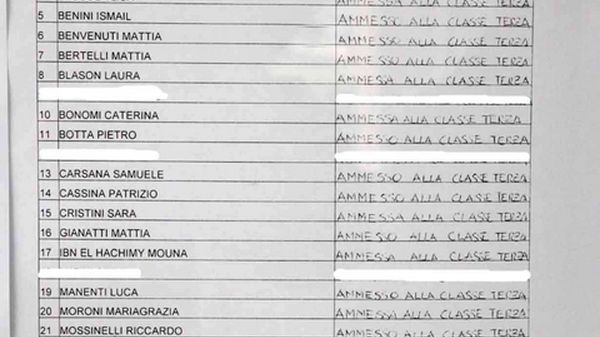 5 BENINI ISMAIL AMMESSA ALLA CLASSE TERZA
6 BENVENUTI MATTIA AMMESSO ALLA CLASSE TERZA
7 BERTELLI MATTIA AMMESSO ALLA CLASSE TERZA
8 BLASON LAURA AMMESSA ALLA CLASSE TERZA
10 BONOMI CATERINA AMMESSA ALLA CLASSE TERZA
11 BOTTA PIETRO AMMESSO ALLA CLASSE TERZA
13 CARSANA SAMUELE AMMESSO ALLA CLASSE TERZA
14 CASSINA PATRIZIO AMMESSO ALLA CLASSE TERZA
15 CRISTINI SARA AMMESSA ALLA CLASSE TERZA
16 GIANATTI MATTIA AMMESSO ALLA CLASSE TERZA
17 IBN EL HACHIMY MOUNA AMMESSA ALLA CLASSE TERZA
19 MANENTI LUCA AMMESSO ALLA CLASSE TERZA
20 MORONI MARIAGRAZIA AMMESSA ALLA CLASSE TERZA
21 MOSSINELLI RICCARDO AMMESSO ALLA CLASSE TERZA